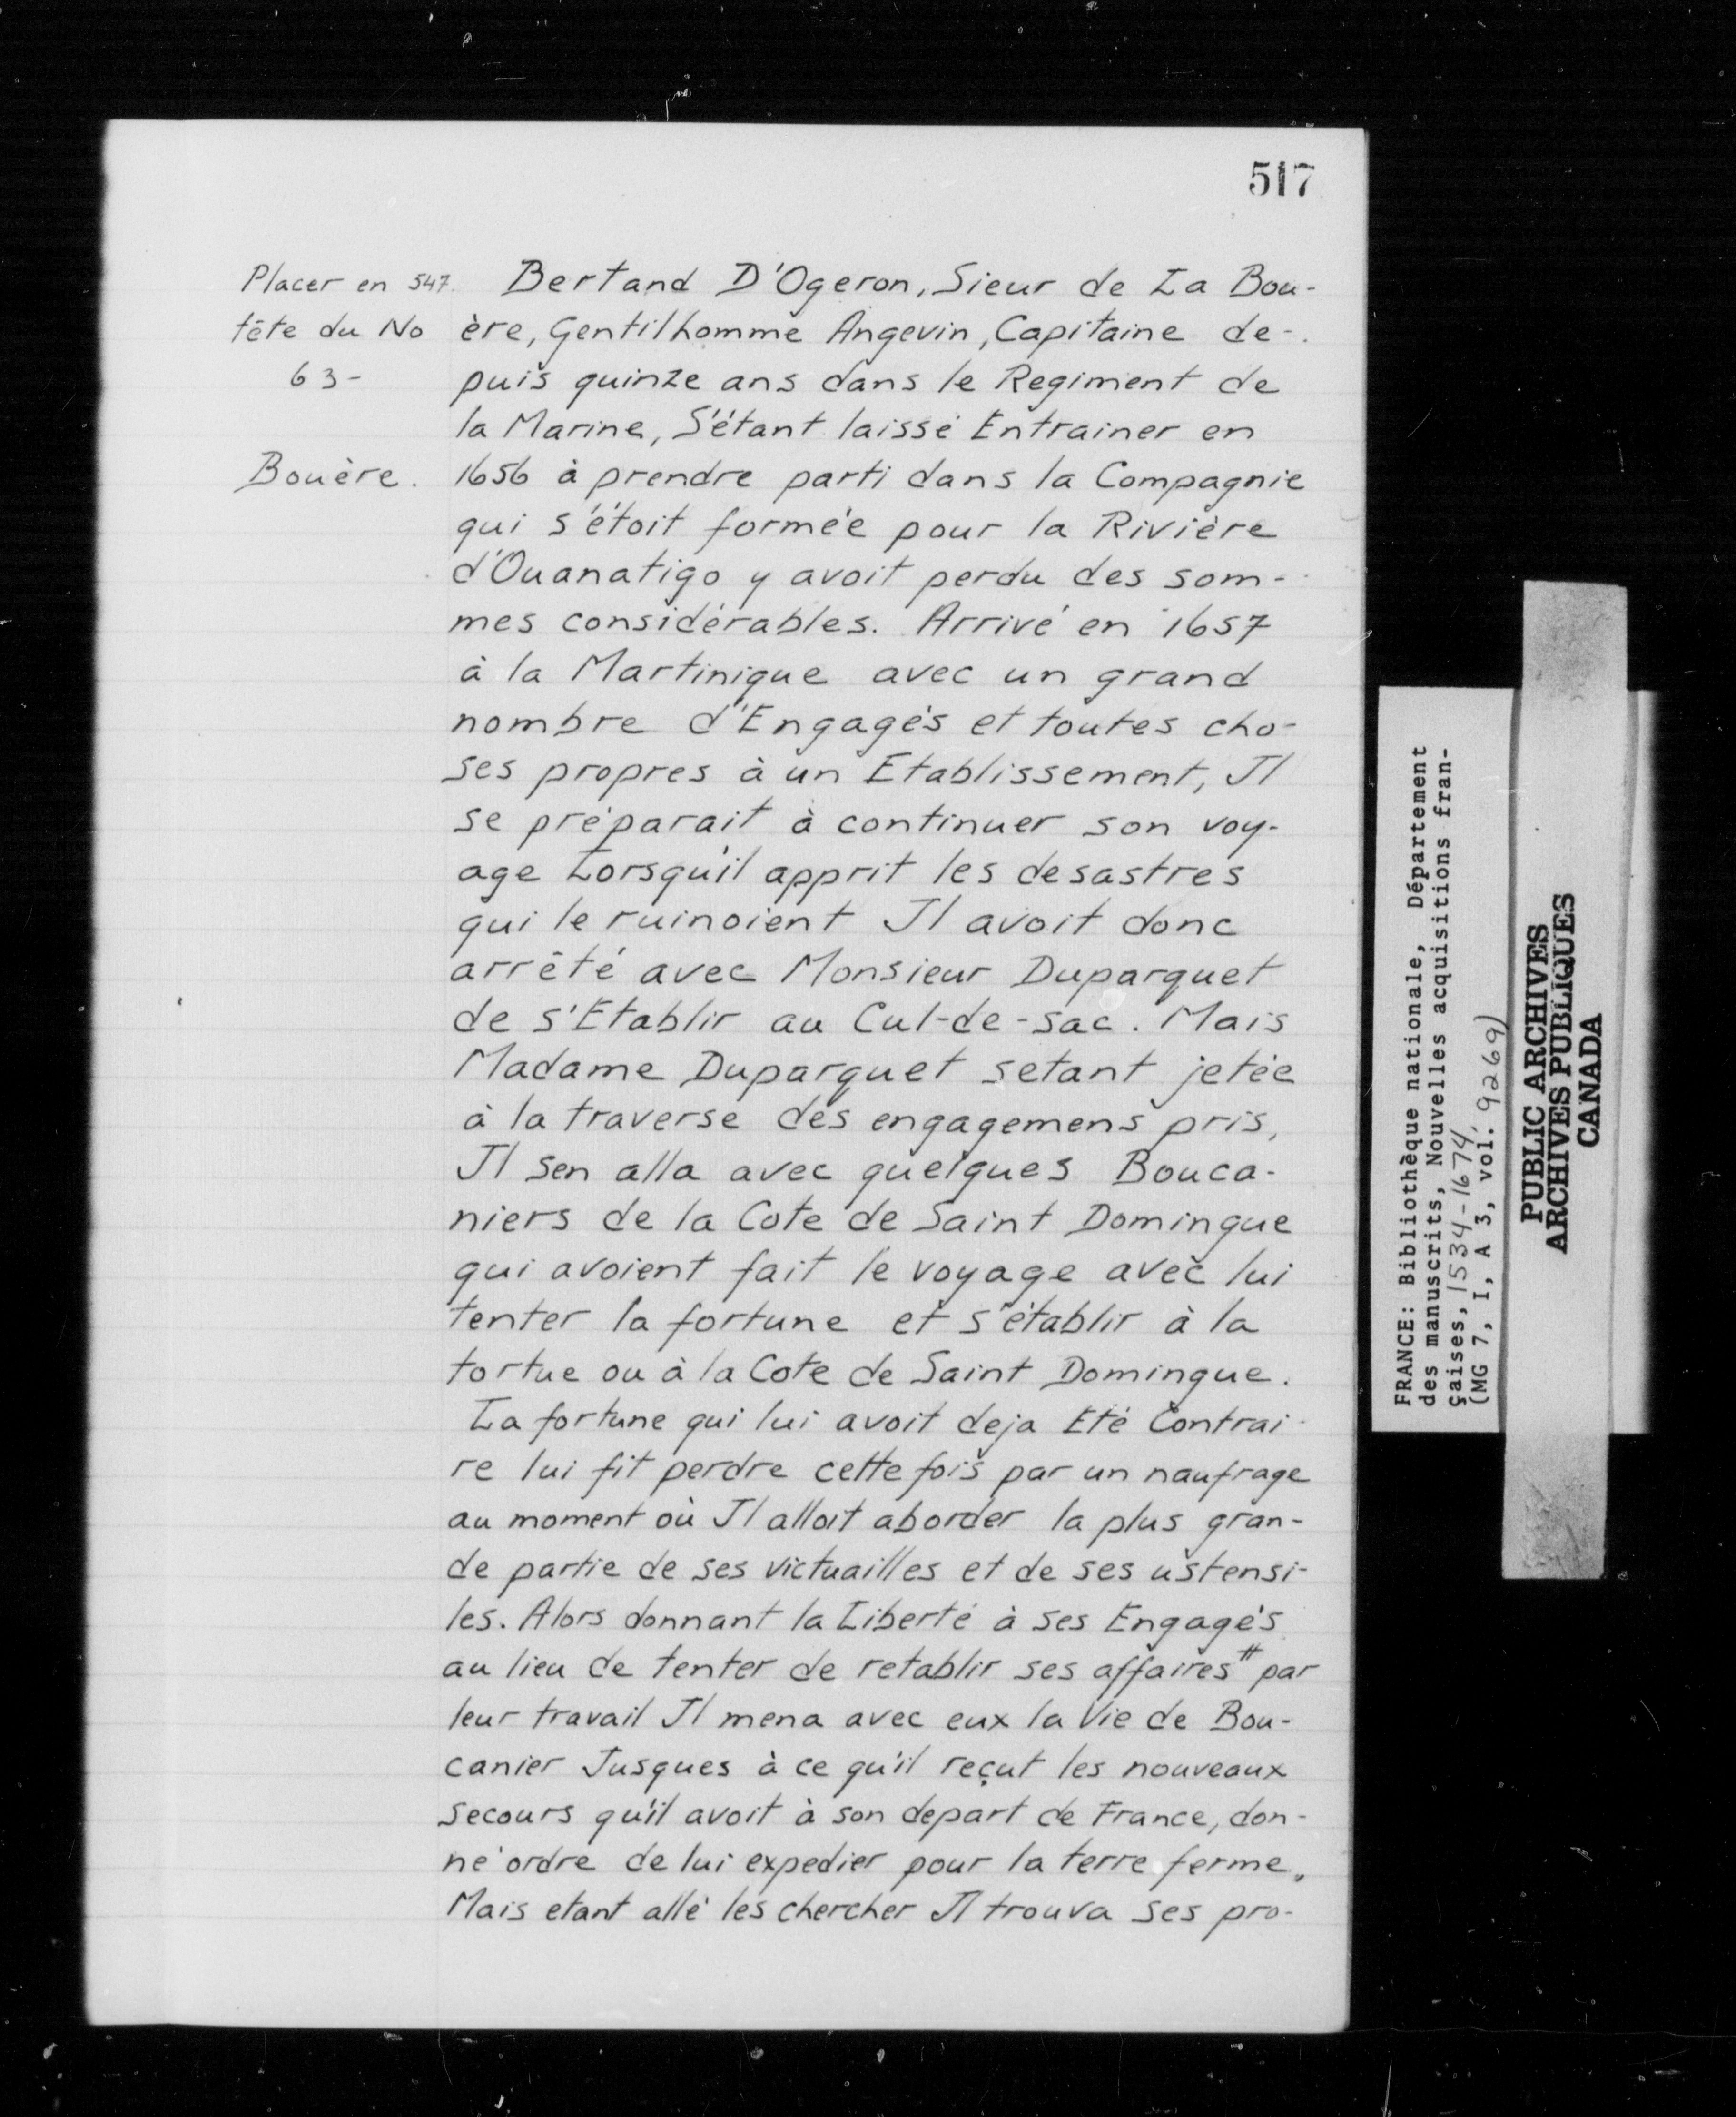 517
Placer en 547.
tête du No
63-
Bouère.
Bertand D'Ogeron, Sieur de La Bou-
ère, Gentilhomme Angevin, Capitaine de-
puis quinze ans dans le Regiment de
la Marine, S'étant laissé Entrainer en
1656 à prendre parti dans la Compagnie
qui s'étoit formée pour la Rivière
d'Ouanatigo y avoit perdu des som-
mes considérables. Arrivé en 1657
à la Martinique avec un grand
nombre d'Engagés et toutes cho-
ses propres à un Etablissement, Il
se préparait à continuer son voy-
age Lorsqu'il apprit les desastres
qui le ruinoient Il avoit donc
arrêté avec Monsieur Duparquet
de s'Etablir au Cul-de-sac. Mais
Madame Duparquet setant jetée
à la traverse des engagemens pris,
Il sen alla avec quelques Bouca-
niers de la Cote de Saint Domingue
qui avoient fait le voyage avec lui
tenter la fortune et s'établir à la
tortue ou à la Cote de Saint Domingue.
La fortune qui lui avoit deja Eté Contrai-
re lui fit perdre cette fois par un naufrage
au moment où Il alloit aborder la plus gran-
de partie de ses victuailles et de ses ustensi-
les. Alors donnant la Liberté à ses Engagés
au lieu de tenter de retablir ses affaires # par
leur travail Il mena avec eux la Vie de Bou-
canier Jusques à ce qu'il reçut les nouveaux
secours qu'il avoit à son depart de France, don-
né ordre de lui expedier pour la terre ferme,
Mais etant allé les chercher Il trouva ses pro-
FRANCE: Bibliothèque nationale, Département
des manuscrits, Nouvelles acquisitions fran-
çaises, 1534-1674
(MG 7, I, A 3, vol. 9269)
PUBLIC ARCHIVES
ARCHIVES PUBLIQUES
CANADA